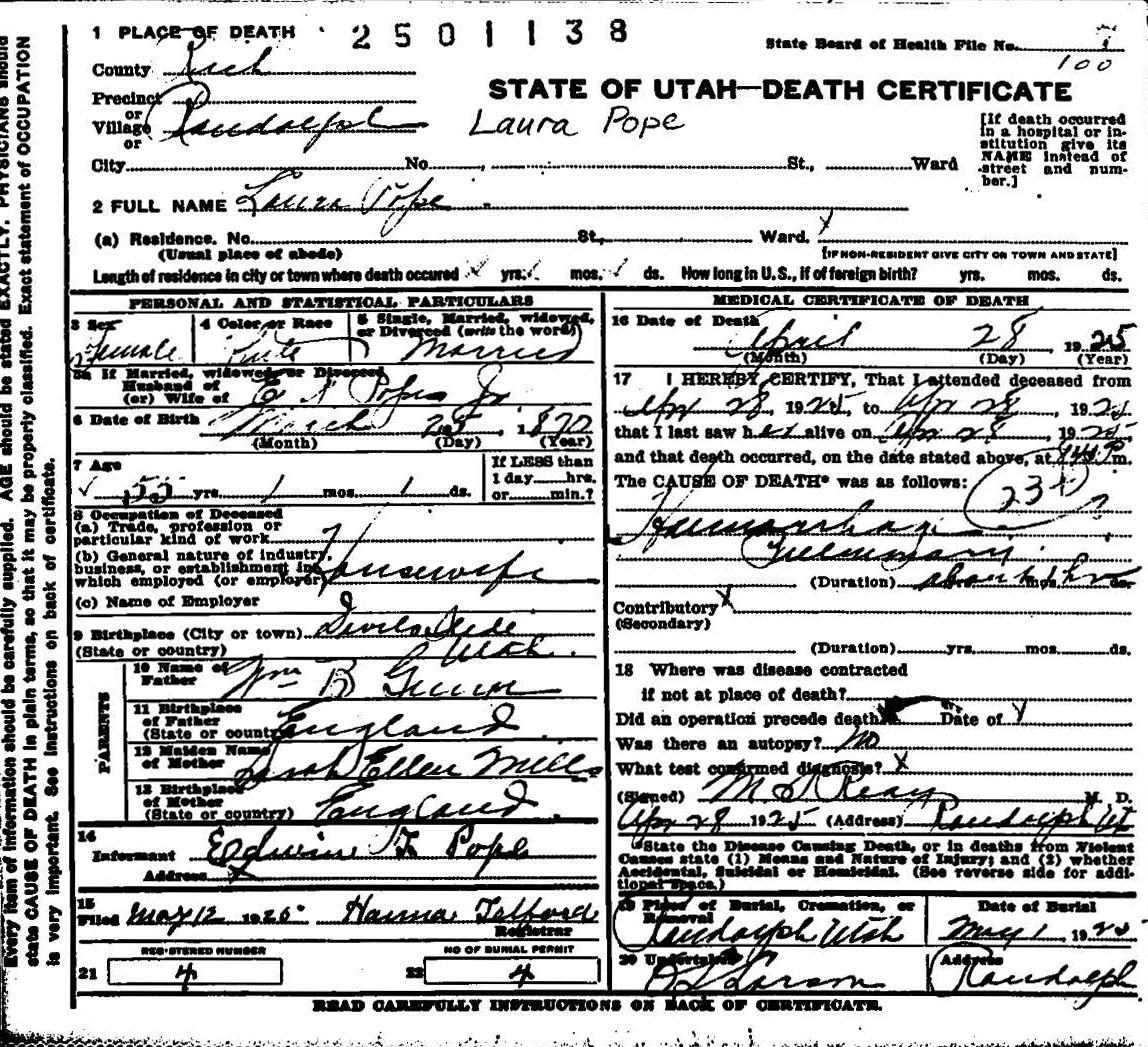 1 PLACE OF DEATH 2501138 State Board of Health File No. 7
100
County Rich
STATE OF UTAH—DEATH CERTIFICATE
Precinct
or
Village Randolph Laura Pope
or
[If death occurred
in a hospital or in-
stitution give its
NAME instead of
street and num-
ber.]
City No. St., Ward
2 FULL NAME Laura Pope
(a) Residence. No. St., Ward.
(Usual place of abode) [IF NON-RESIDENT GIVE CITY OR TOWN AND STATE]
Length of residence in city or town where death occured yrs. mos. ds. How long in U. S., if of foreign birth? yrs. mos. ds.
PERSONAL AND STATISTICAL PARTICULARS
3 Sex 4 Color or Race 5 Single, Married, widowed,
or Divorced (write the word)
Female Married
5a If Married, widowed or Divorced
Husband of
(or) Wife of E Pope Jr
6 Date of Birth March 25, 1870
(Month) (Day) (Year)
7 Age If LESS than
1 day hrs.
55 yrs. 1 mos. 1 ds. or min.?
8 Occupation of Deceased
(a) Trade, profession or
particular kind of work
(b) General nature of industry,
business, or establishment in
which employed (or employer) Housewife
(c) Name of Employer
9 Birthplace (City or town) Devils Slide
(State or country) Utah.
PARENTS
10 Name of
Father Wm B
11 Birthplace
of Father
(State or country) England
12 Maiden Name
of Mother Sarah Ellen Mills
13 Birthplace
of Mother
(State or country) England
14
Informant Edwin Pope
Address x
15
Filed May 12 1925 Hanna Telford
Registrar
REGISTERED NUMBER NO OF BURIAL PERMIT
21 4 22 4
MEDICAL CERTIFICATE OF DEATH
16 Date of Death April 28, 1925
(Month) (Day) (Year)
17 I HEREBY CERTIFY, That I attended deceased from
Apr 28, 1925, to Apr 28, 1925
that I last saw her alive on Apr 28, 1925,
and that death occurred, on the date stated above, at P m.
The CAUSE OF DEATH* was as follows:
Hemorrhage
(Duration) about 1 hr mos. ds.
Contributory x
(Secondary)
(Duration) yrs. mos. ds.
18 Where was disease contracted
if not at place of death?
Did an operation precede death Date of
Was there an autopsy? No
What test confirmed diagnosis? x
(Signed) M S Reay M. D.
Apr 28 1925 (Address) Randolph Ut
*State the Disease Causing Death, or in deaths from Violent
Causes state (1) Means and Nature of Injury; and (2) whether
Accidental, Suicidal or Homicidal. (See reverse side for addi-
tional space.)
19 Place of Burial, Cremation, or
Removal Date of Burial
Randolph Utah May 1 1925
20 Undertaker Address
Larson Randolph
READ CAREFULLY INSTRUCTIONS ON BACK OF CERTIFICATE.
Every item of information should be carefully supplied. AGE should be stated EXACTLY. PHYSICIANS should
state CAUSE OF DEATH in plain terms, so that it may be properly classified. Exact statement of OCCUPATION
is very important. See instructions on back of certificate.